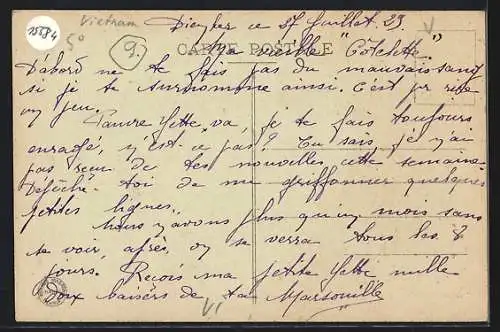 15684
Vietnam
5°
9.
Dieppe ce 27 Juillet 29.
CARTE POSTALE
Ma vieille "Côtelette"
D'abord ne te fais pas du mauvais sang
si je te surnomme ainsi. C'est pr rire
un peu.
Pauvre Yette, va, je te fais toujours
enragé, n'est-ce pas ? Tu sais je n'ai
pas reçu de tes nouvelles cette semaine
Dépêche-toi de me griffonner quelques
petites lignes.
Nous n'avons plus qu'un mois sans
se voir, après, on se verra tous les
jours. Reçois ma petite Yette mille
doux baisers de ta Marsouille
VI